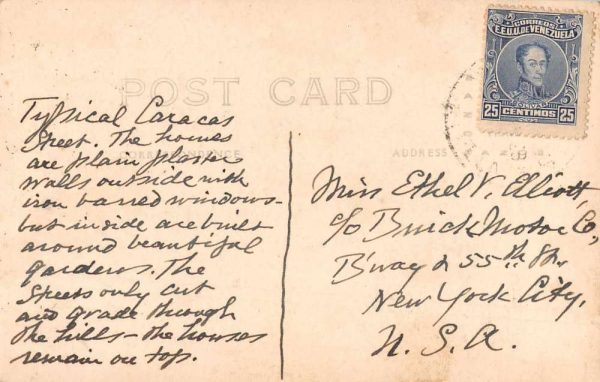 POST CARD
CORREOS
E.E.U.U. DE VENEZUELA
BOLIVAR
25 CENTIMOS 25
CORRESPONDENCE
ADDRESS
Typical Caracas
Street. The homes
are plain plasters
walls outside with
iron barred windows-
but inside are built
around beautiful
gardens. The
Streets only cut
and grade through
the hills - the houses
remain on top.
Miss Ethel V. Elliott,
c/o Buick Motor Co,
B'way & 55th St.
New York City,
U. S. A.